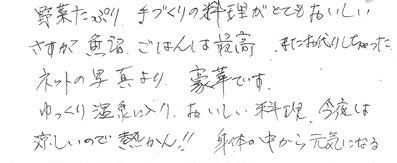 野菜たっぷり 手づくりの料理がとてもおいしい
さすが魚沼 ごはんは最高 またおかわりしちゃった
ネットの写真より 豪華です。
ゆっくり温泉に入り おいしい料理 今夜は
涼しいので熱かん!! 身体の中から元気になる